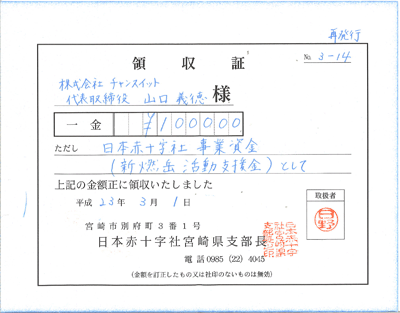 再発行
領収証
No 3-14
株式会社 チャンスイット
代表取締役 山口 義徳 様
一金 ¥100000
ただし 日本赤十字社 事業資金
(新燃岳 活動支援金)として
上記の金額正に領収いたしました
平成 23年 3月 1日
取扱者
日野
宮崎市別府町3番1号
日本赤十字社宮崎県支部長
電話 0985 (22) 4045
(金額を訂正したもの又は社印のないものは無効)